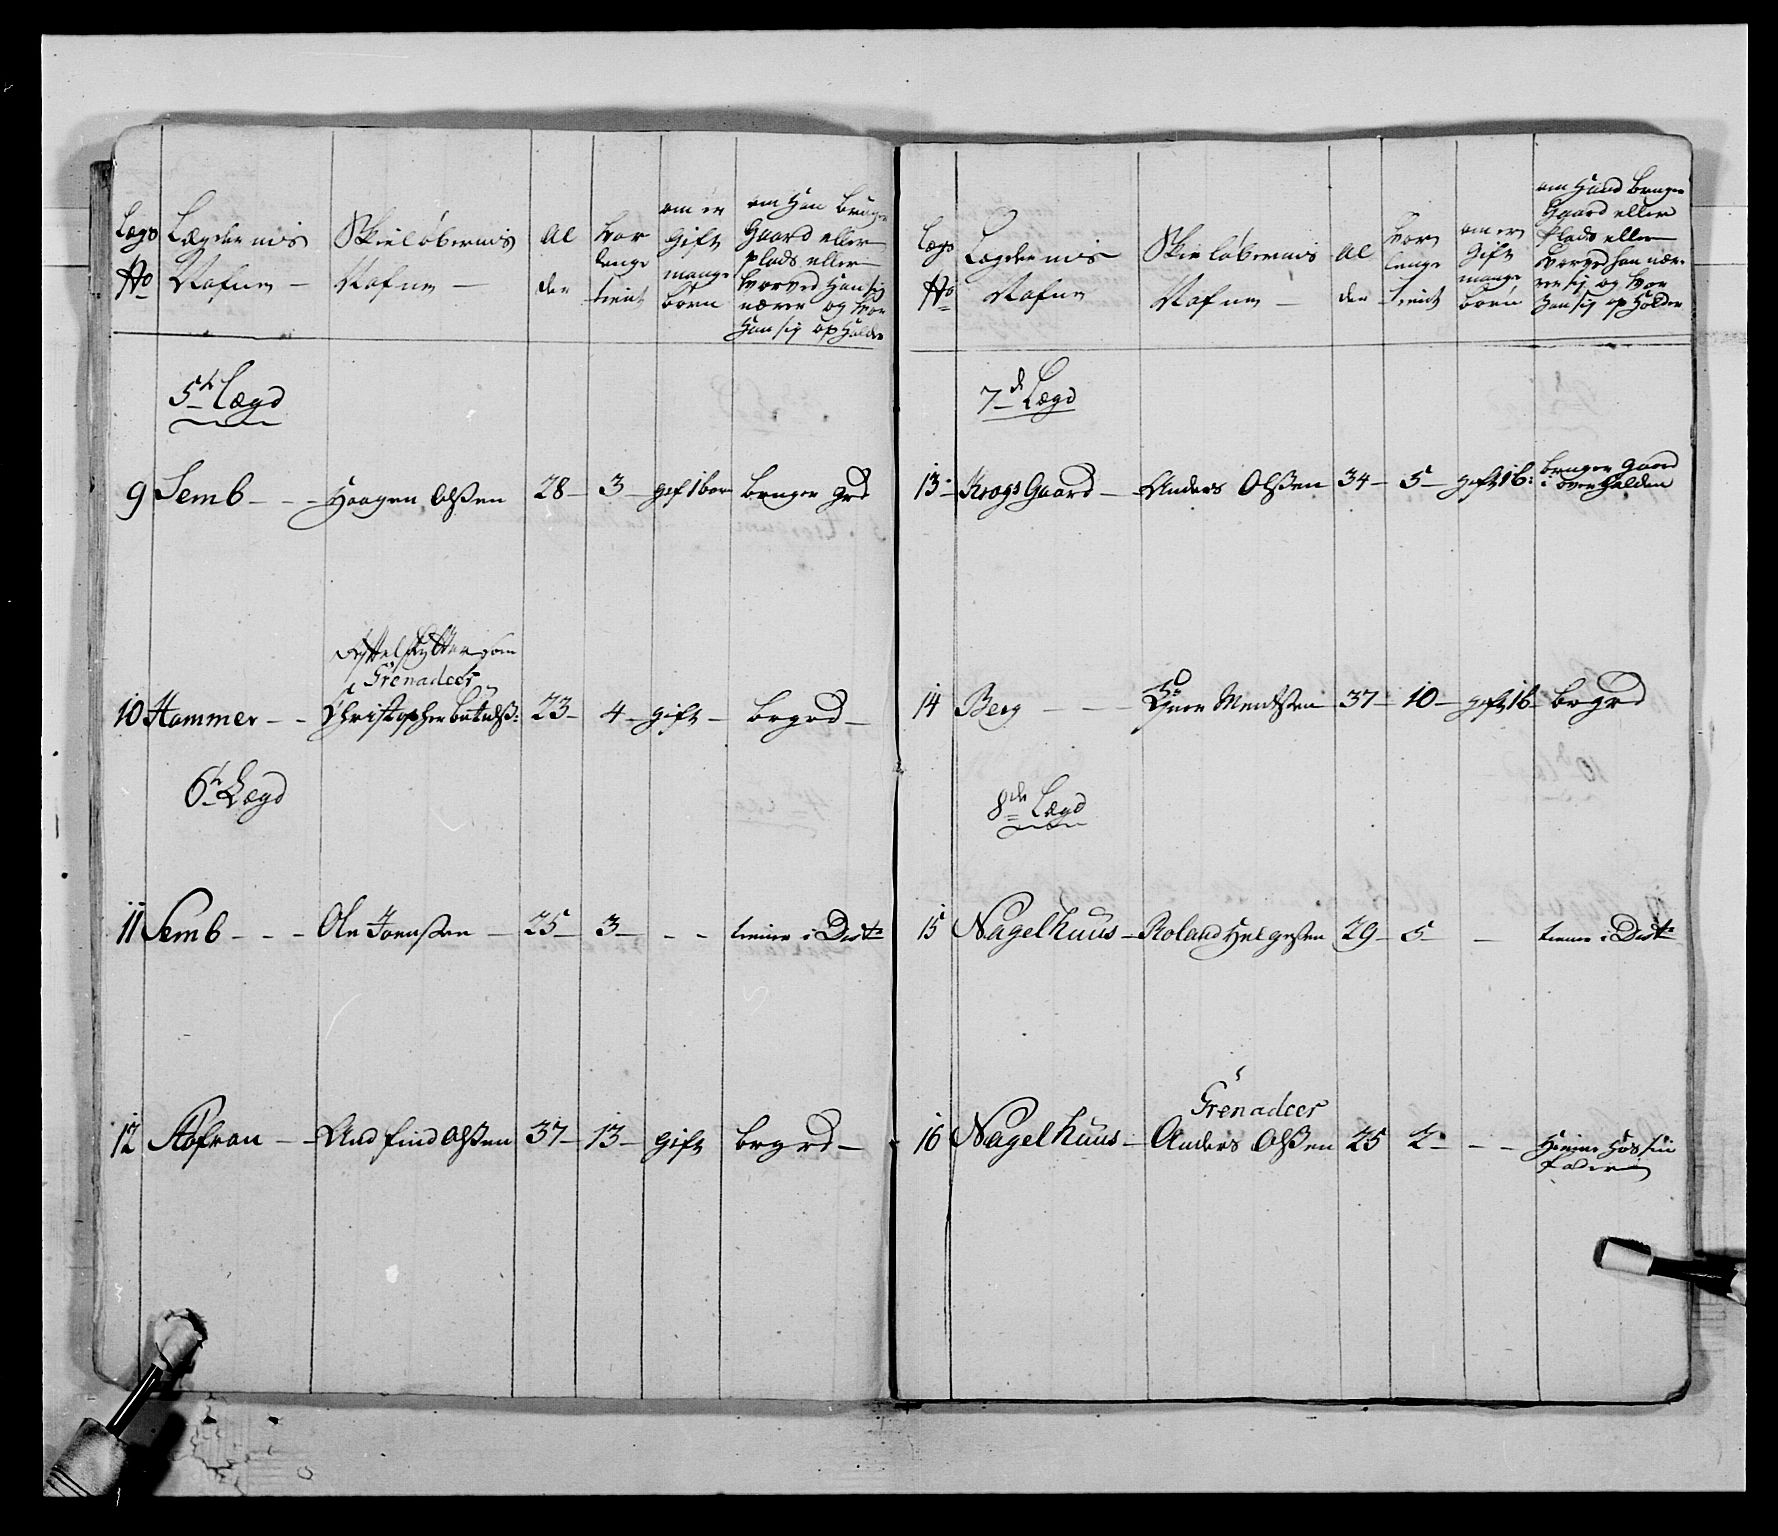 Lægs No
Lægdernis Nafne
Skieløbernis Nafne
Al der
hvor lenge tient
om er gift mange børn
om Han Bruger
Gaard eller
plads eller
hvorved Han sig
nærer og hvor
Han sig opholder
5te Lægd
9 Semb - - - Haagen Olßen 28 - 3 - gif 1 bar bruger grd
som
Grenadeer
10 Hammer - - Christopher 23 - 4 - gift - br grd -
6te Lægd
11 Semb - - - Ole Joenßen - 25 - 3 - - - tiener i Distr
12 Aafran - - And find Olßen 37 - 13 - gift br grd -
Lægs No
Lægdernis Nafne
Skieløbernis Nafne
Al der
hvor lenge tient
om er gift mange børn
om Hand bruger
Gaard eller
Plads eller
hvorved han nær-
rer sig og hvor
Han sig opholder
7de Lægd
13 - Krogs Gaard - Anders Olßen 34 - 5 - gift 1 b: bruger gaard
i overhalden
14 Berg - - - Mentßen 37 - 10 - gift 1 b br grd
8de Lægd
15 Nagelhuus - Roland Helgeßen 29 - 5 - - tiener i Distr
Grenadeer
16 Nagelhuus - Anders Olßen 25 2 - - - Hiemme hos sin
Fader